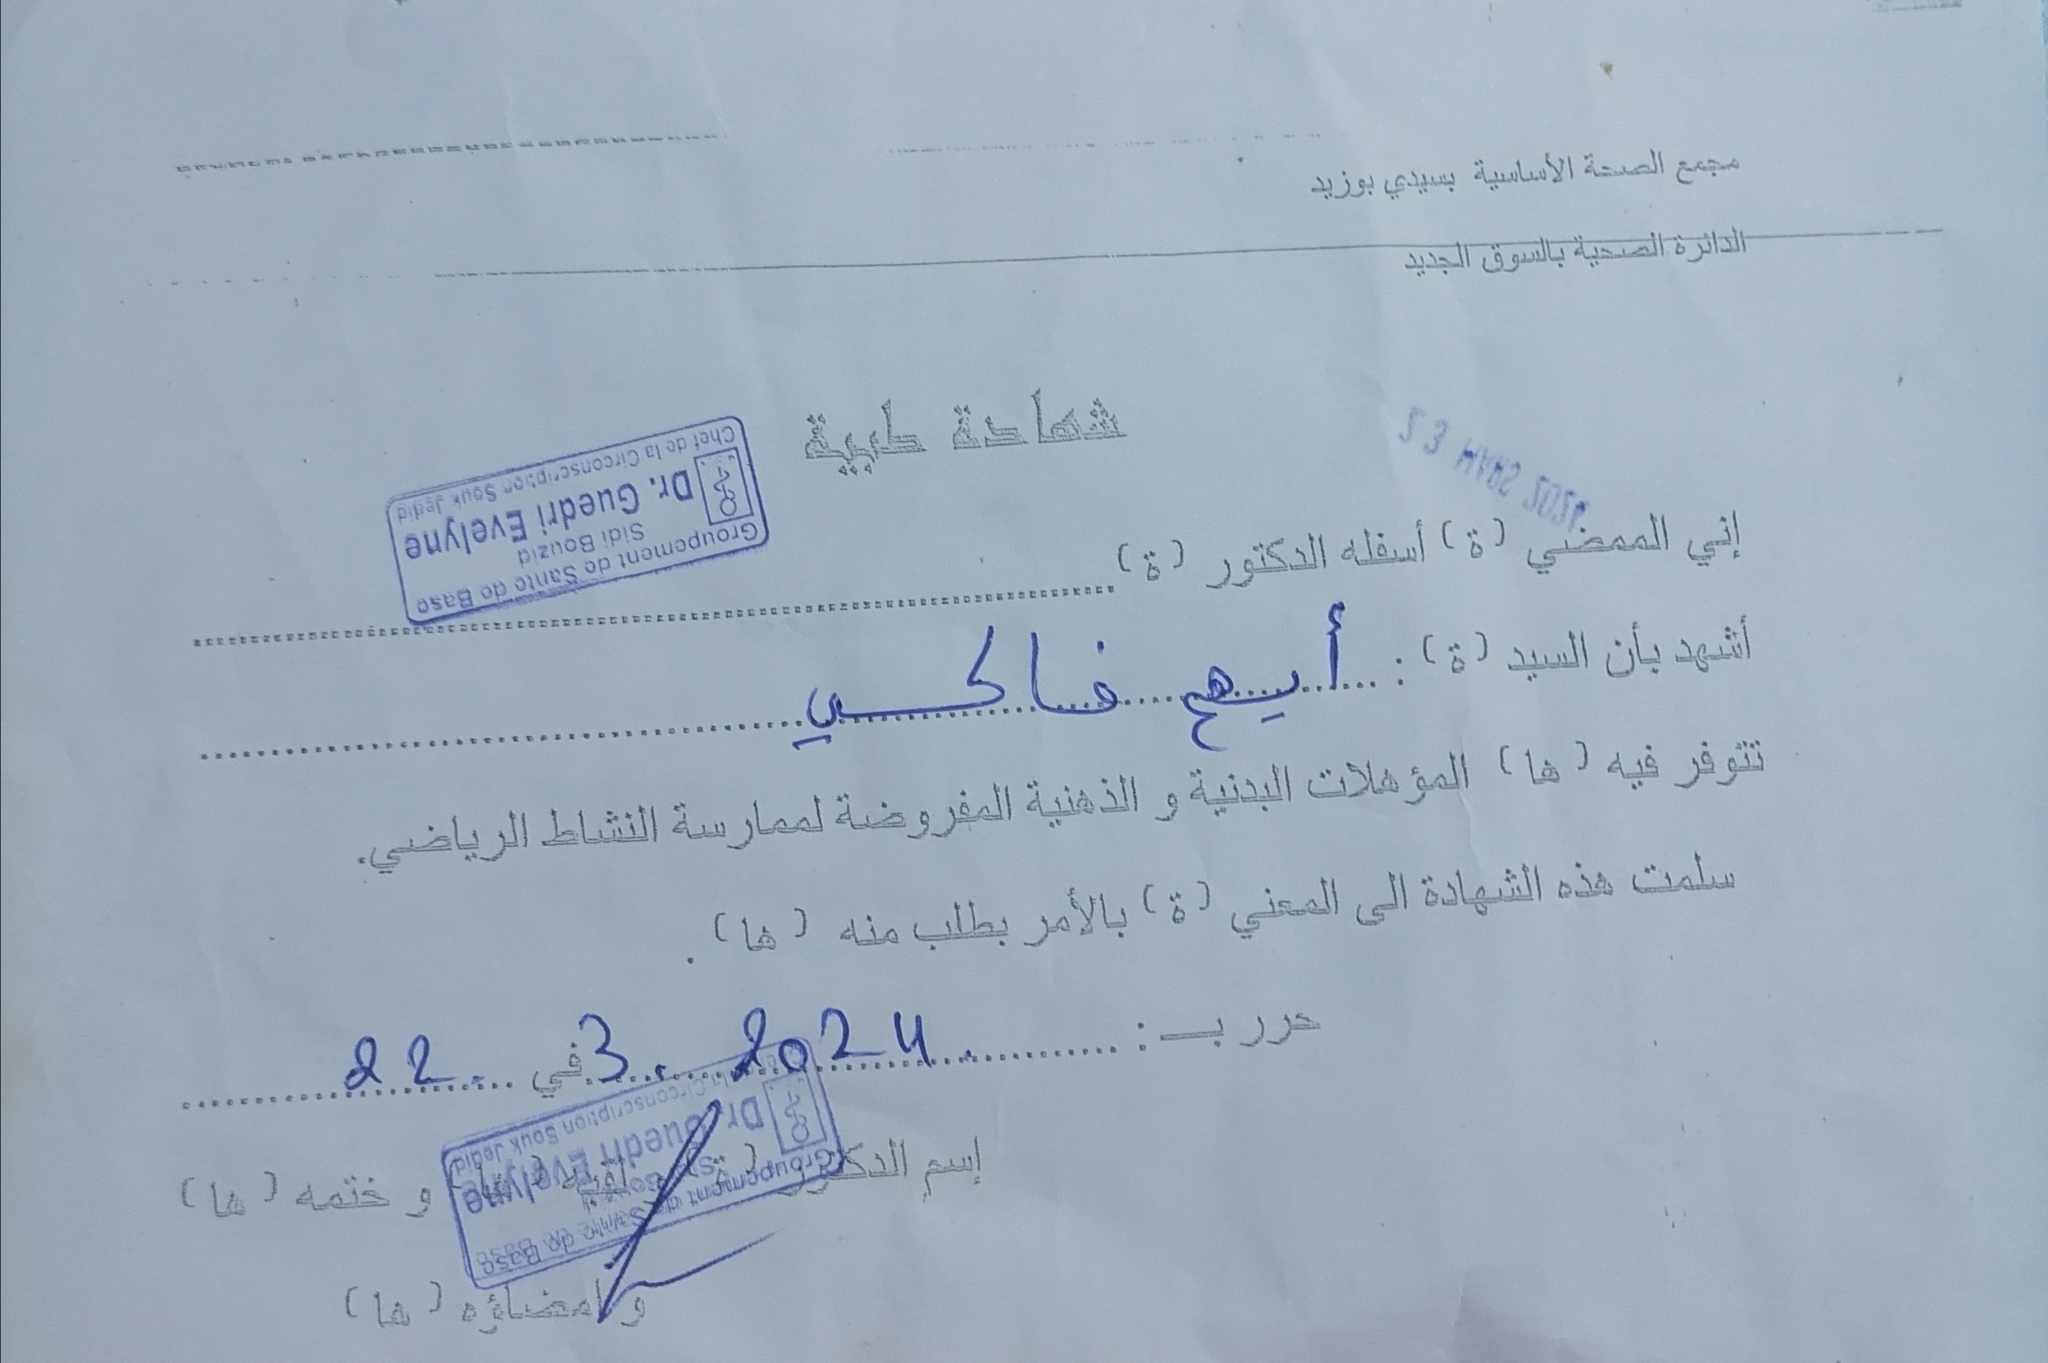 مجمع الصحة الأساسية بسيدي بوزيد
الدائرة الصحية بالسوق الجديد
شهادة طبية
23 MARS 2024
Groupement de Sante de Base
Sidi Bouzid
Dr. Guedri Evelyne
Chef de la Circonscription Souk Jedid
إني الممضي (ة) أسفله الدكتور (ة)
أشهد بأن السيد (ة) : أيهم
تتوفر فيه (ها) المؤهلات البدنية و الذهنية المفروضة لممارسة النشاط الرياضي.
سلمت هذه الشهادة الى المعني (ة) بالأمر بطلب منه (ها) .
حرر بـ : 22. في 3. 2024
إسم الدكتور (ة) و لقبه (ها) و ختمه (ها)
Groupement de Sante de Base
Dr. Guedri Evelyne
Circonscription Souk Jedid
و امضاؤه (ها)